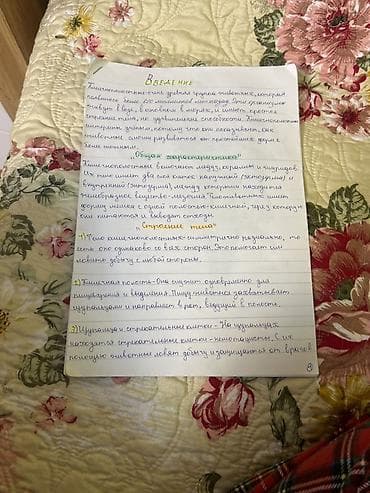 Введение
Кишечнополостные-это древняя группа животных, которая
появилась более 600 миллионов лет назад. Эти организмы
живут в воде, в основном в морях, и имеют простое
строение тела, но удивительные способности. Кишечнополостные
интересны учёным, потому что они показывают, как
животные смогли развиваться от простейших форм к
более сложным.
"Общая характеристика"
Кишечнополостные включают медуз, кораллы и гидроидов.
Их тело имеет два слоя клеток наружный (эктодерма) и
внутренний (энтодерма), между которыми находится
желеобразное вещество-мезоглея. Эти животные имеют
форму мешка с одной полостью-кишечной, через которую
они питаются и выводят отходы.
"Строение тела"
1) Тело кишечнополостных-симметрично радиально, то
есть оно одинаково со всех сторон. Это помогает им
ловить добычу с любой стороны.
2) Кишечная полость-Она служит одновременно для
пищеварения и выделения. Пищу животное захватывает
щупальцами и направляет в рот, ведущий в полость.
3) Щупальца и стрекательные клетки-На щупальцах
находятся стрекательные клетки-нематоцисты. С их
помощью животные ловят добычу и защищаются от врагов